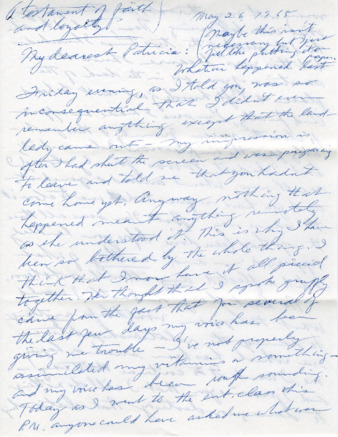 A testament of faith
and loyalty!
May 26 1965
(Maybe this isn't
necessary but
My dearest Patricia:
What happened last
Friday evening, as I told you, was so
inconsequential that I didn't even
remember anything except that the land
lady came out — my impression is
after I had shut the screen and was preparing
to leave and told me that you hadn't
come home yet. Anyway nothing that
happened meant anything remotely
as she understood it. This is why I have
been so bothered by the whole thing. I
think that I now have it all pieced
together. The thought that I spoke gruffly
came from the fact that for several of
the last few days my voice has been
giving me trouble — I've not properly
assimilated my vitamins or something —
and my voice has been rough sounding.
Today as I went to the class this
P.M. anyone could have asked me what was